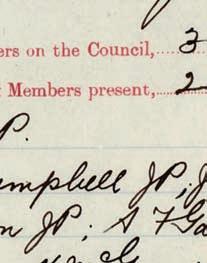 ers on the Council, 3
Members present, 2
P.
ampbell JP, J
n JP. A F Ga